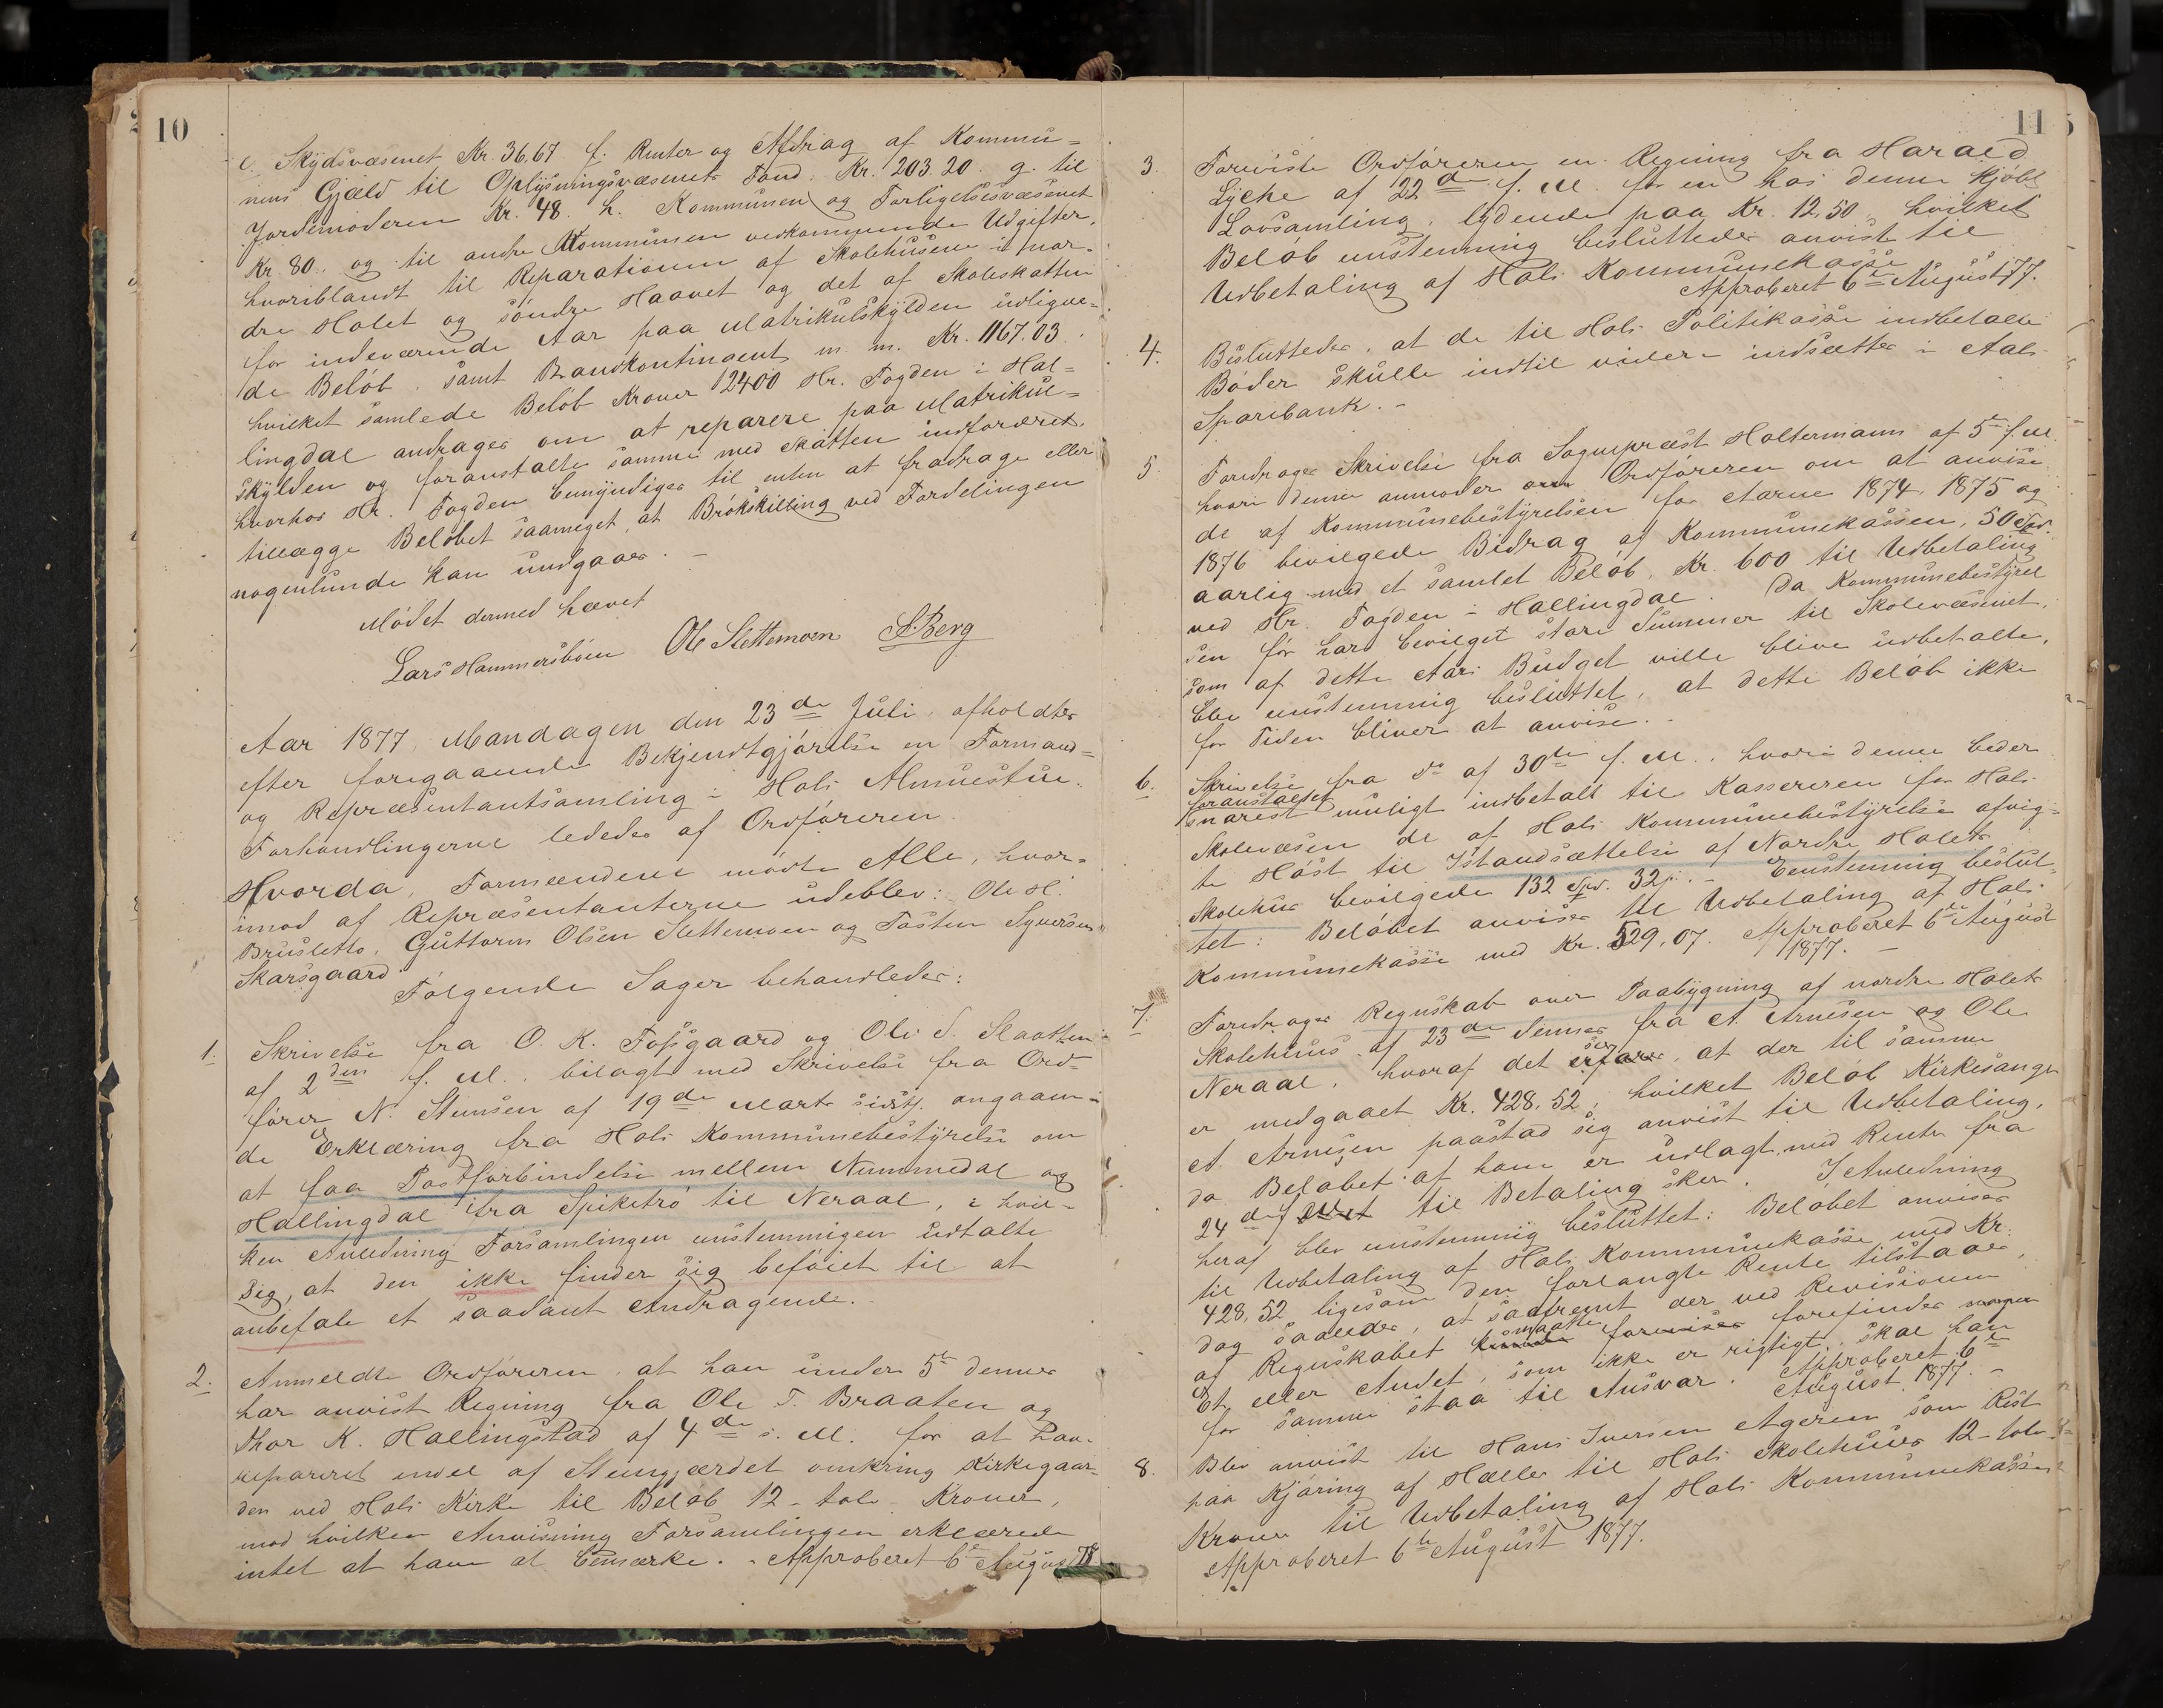 10
e. Skydsvæsenet Kr. 36.67 f. Renter og Afdrag af Kommu=
nens Gjæld til Oplysningsvæsenets Fond: Kr. 203.20. g. til
Jordemoderen Kr. 48. h. Kommunen og Forligelsesvæsenet
Kr. 80. og til andre Kommunen vedkommende Udgifter,
hvoriblandt til Reparationen af Skolehusene i nor-
dre Holet og søndre Haavet og det af Skoleskatten
for indeværende Aar paa Matrikulskylden udligne-
de Beløb, samt Brandkontingent m. m. Kr. 1167.03.
hvilket samlede Beløb Kroner 2400 Hr. Fogden i Hal=
lingdal andrages om at reparere paa Matrikul=
skylden og foranstalte samme med Skatten indfordret,
hvorhos Hr. Fogden bemyndiges til enten at fradrage eller
tillægge Beløbet saameget, at Brøkskilling ved Fordelingen
nogenlunde kan undgaaes. –
Mødet dermed hævet
Lars Hammersbøen Ole Slettemoen S. Berg
Aar 1877, Mandagen den 23de Juli, afholdtes
efter foregaaende Bekjendtgjørelse en Formand=
og Repræsentantsamling i Hols Almuestue.
Forhandlingerne lededes af Ordføreren.
Hvorda, Formændene mødte Alle, hvor-
imod af Repræsentanterne udeblev: Ole H.
Brusletto, Guttorm Olsen Slettemoen og Tosten Syversen
Skarsgaard
Følgende Sager behandledes:
1. Skrivelse fra O. K. Fossgaard og Ole S. Slaatten
af 2den f. M., bilagt med Skrivelse fra Ord-
fører N. Steinsen af 19de Marts sidstl. angaaen-
de Erklæring fra Hols Kommunebestyrelse om
at faa Postforbindelse mellem Nummedal og
Hallingdal fra Spiketrø til Neraal, i hvil-
ken Anledning Forsamlingen enstemmigen udtalte
sig, at den ikke finder sig beføiet til at
anbefale et saadant Andragende. –
2. Anmeldte Ordføreren, at han under 5te dennes
har anvist Regning fra Ole T. Braaten og
Thor K. Hallingstad af 4de s. M. for at have
repareret endel af Steengjærdet omkring Kirkegaar-
den ved Hols Kirke til Beløb 12 – tolv – Kroner,
mod hvilken Anvisning Forsamlingen erklærede
intet at have at bemærke. – Approberet 6te August 77
11
3. Foreviste Ordføreren en Regning fra Harald
Lyche af 22de f. M. for en hos denne kjøbt
Lovsamling, lydende paa Kr. 12,50, hvilket
Beløb enstemmig besluttedes anvist til
Udbetaling af Hols Kommunekasse
Approberet 6te August 77.
4. Besluttedes, at de til Hols Politikasse indbetalte
Bøder skulle indtil videre indsættes i Aals
Sparebank. –
5. Foredroges Skrivelse fra Sogneprest Holtermann af 5te f. M.
hvori denne anmoder Ordføreren om at anvise
de af Kommunebestyrelsen for Aarne 1874, 1875 og
1876 bevilgede Bidrag af Kommunekassen, 50 Spd.
aarlig med et samlet Beløb, Kr. 600 til Udbetaling
ved Hr. Fogden i Hallingdal. Da Kommunebestyrel
sen før har bevilget store Summer til Skolevæsenet,
som af dette Aars Budget ville blive udbetalte,
blev enstemmig besluttet, at dette Beløb ikke
for Tiden bliver at anvise. –
6. Skrivelse fra Do af 30te f. M., hvori denne beder
foranstaltet
snarest muligt indbetalt til Kassereren for Hols
Skolevæsen de af Hols Kommunebestyrelse afvig-
te Høst til Istandsættelse af Nordre Holets
Skolehus bevilgede 132 Spd. 32 s. – Eenstemmig beslut-
tet: Beløbet anvises til Udbetaling af Hols
Kommunekasse med Kr. 529,07. Approberet 6te August
1877. –
7. Foredroges Regnskab over Paabygning af nordre Holets
Skolehuus af 23de dennes fra A. Arnesen og Ole
Neraal, hvoraf det sees, at der til samme
er medgaaet Kr. 428,52, hvilket Beløb Kirkesanger
A. Arnesen paastod sig anvist til Udbetaling,
da Beløbet af ham er udlagt, med Rente fra
24de f. M. til Betaling sker. I Anledning
heraf blev enstemmig besluttet: Beløbet anvises
til Udbetaling af Hols Kommunekasse med Kr.
428,52 ligesom den forlangte Rente tilstaaes,
dog saaledes, at saafremt der ved Revisionen
af Regnskabet maatte forefindes
Et eller Andet, som ikke er rigtigt, skal han
for samme staa til Ansvar. Approberet 6te
August 1877. –
8. Blev anvist til Hans Iversen Ageren som Rest
paa Kjøring af Heller til Hols Skolehuus 12 – tolv –
Kroner til Udbetaling af Hols Kommunekasse
Approberet 6te August 1877.